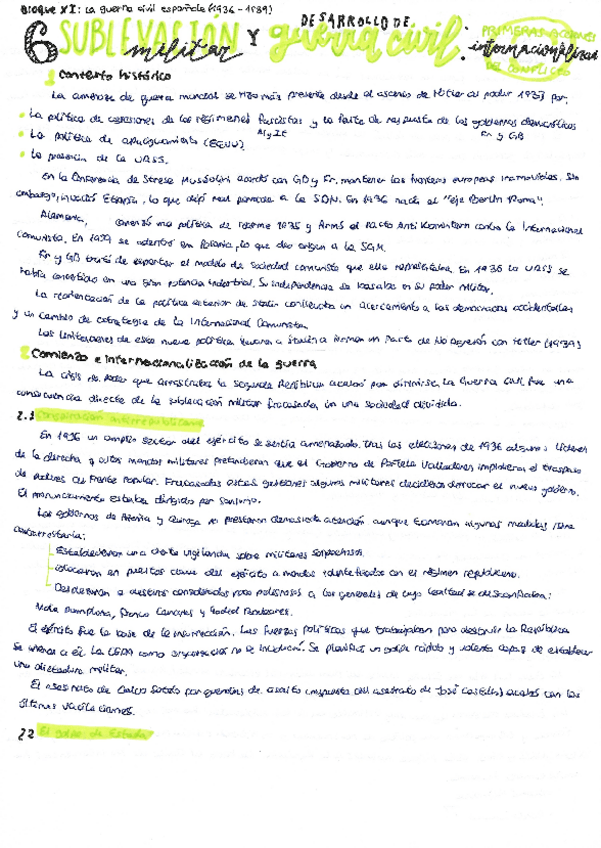 Bloque XI: La guerra civil española (1936 - 1939)
6 SUBLEVACIÓN militar Y DESARROLLO DE guerra civil: PRIMERAS ACCIONES internacionalizar DE CONFLICTO
1 Contexto histórico
La amenaza de guerra mundial se hizo más presente desde el ascenso de Hitler al poder 1933 por:
La política de cesiones de los regímenes fascistas y la falta de respuesta de los gobiernos democráticos
Al y It Fr y GB
La política de apaciguamiento (EEUU).
La presencia de la URSS.
En la Conferencia de Stresa Mussolini acordó con GB y Fr. mantener las fronteras europeas inamovibles. Sin
embargo, invadió Etiopía, lo que dejó mal parada a la SDN. En 1936 nació el "eje Berlín Roma".
Alemania, comenzó una política de rearme 1935 y firmó el Pacto Anti Komintern contra la Internacional
Comunista. En 1939 se adentró en Polonia, lo que dio origen a la SGM.
Fr y GB trató de exportar el modelo de sociedad comunista que ella representaba. En 1936 la URSS se
había convertido en una gran potencia industrial. Su independencia se basaba en su poder militar.
La reorientación de la política exterior de Stalin conllevaba un acercamiento a las democracias occidentales
y un cambio de estrategia de la Internacional Comunista.
Las limitaciones de esta nueva política llevaron a Stalin a firmar un Pacto de No Agresión con Hitler (1939)
2 Comienzo e internacionalización de la guerra
La crisis de poder que arrastraba la Segunda República acabó por dirimirse. La Guerra Civil fue una
consecuencia directa de la sublevación militar fracasada en una sociedad dividida.
2.1 Conspiración antirrepublicana
En 1936 un amplio sector del ejército se sentía amenazado. Tras las elecciones de 1936 algunos líderes
de la derecha y altos mandos militares pretendieron que el Gobierno de Portela Valladares impidiera el traspaso
de poderes al Frente Popular. Fracasadas estas gestiones algunos militares decidieron derrocar el nuevo gobierno.
El pronunciamiento estaba dirigido por Sanjurjo.
Los gobiernos de Azaña y Quiroga no prestaron demasiada atención aunque tomaron algunas medidas para
contrarrestarla:
Establecieron una cierta vigilancia sobre militares sospechosos.
Colocaron en puestos clave del ejército a mandos identificados con el régimen republicano.
Destinaron a destinos considerados poco peligrosos a los generales de cuya lealtad se desconfiaba:
Mola Pamplona, Franco Canarias y Goded Baleares.
El ejército fue la base de la insurrección. Las fuerzas políticas que trabajaban para destruir la República
se unieron a él. La CEDA como organización no se involucró. Se planificó un golpe rápido y violento capaz de establecer
una dictadura militar.
El asesinato de Calvo Sotelo por guardias de asalto (respuesta del asesinato de José Castillo) acabó con las
últimas vacilaciones.
2.2 El golpe de Estado